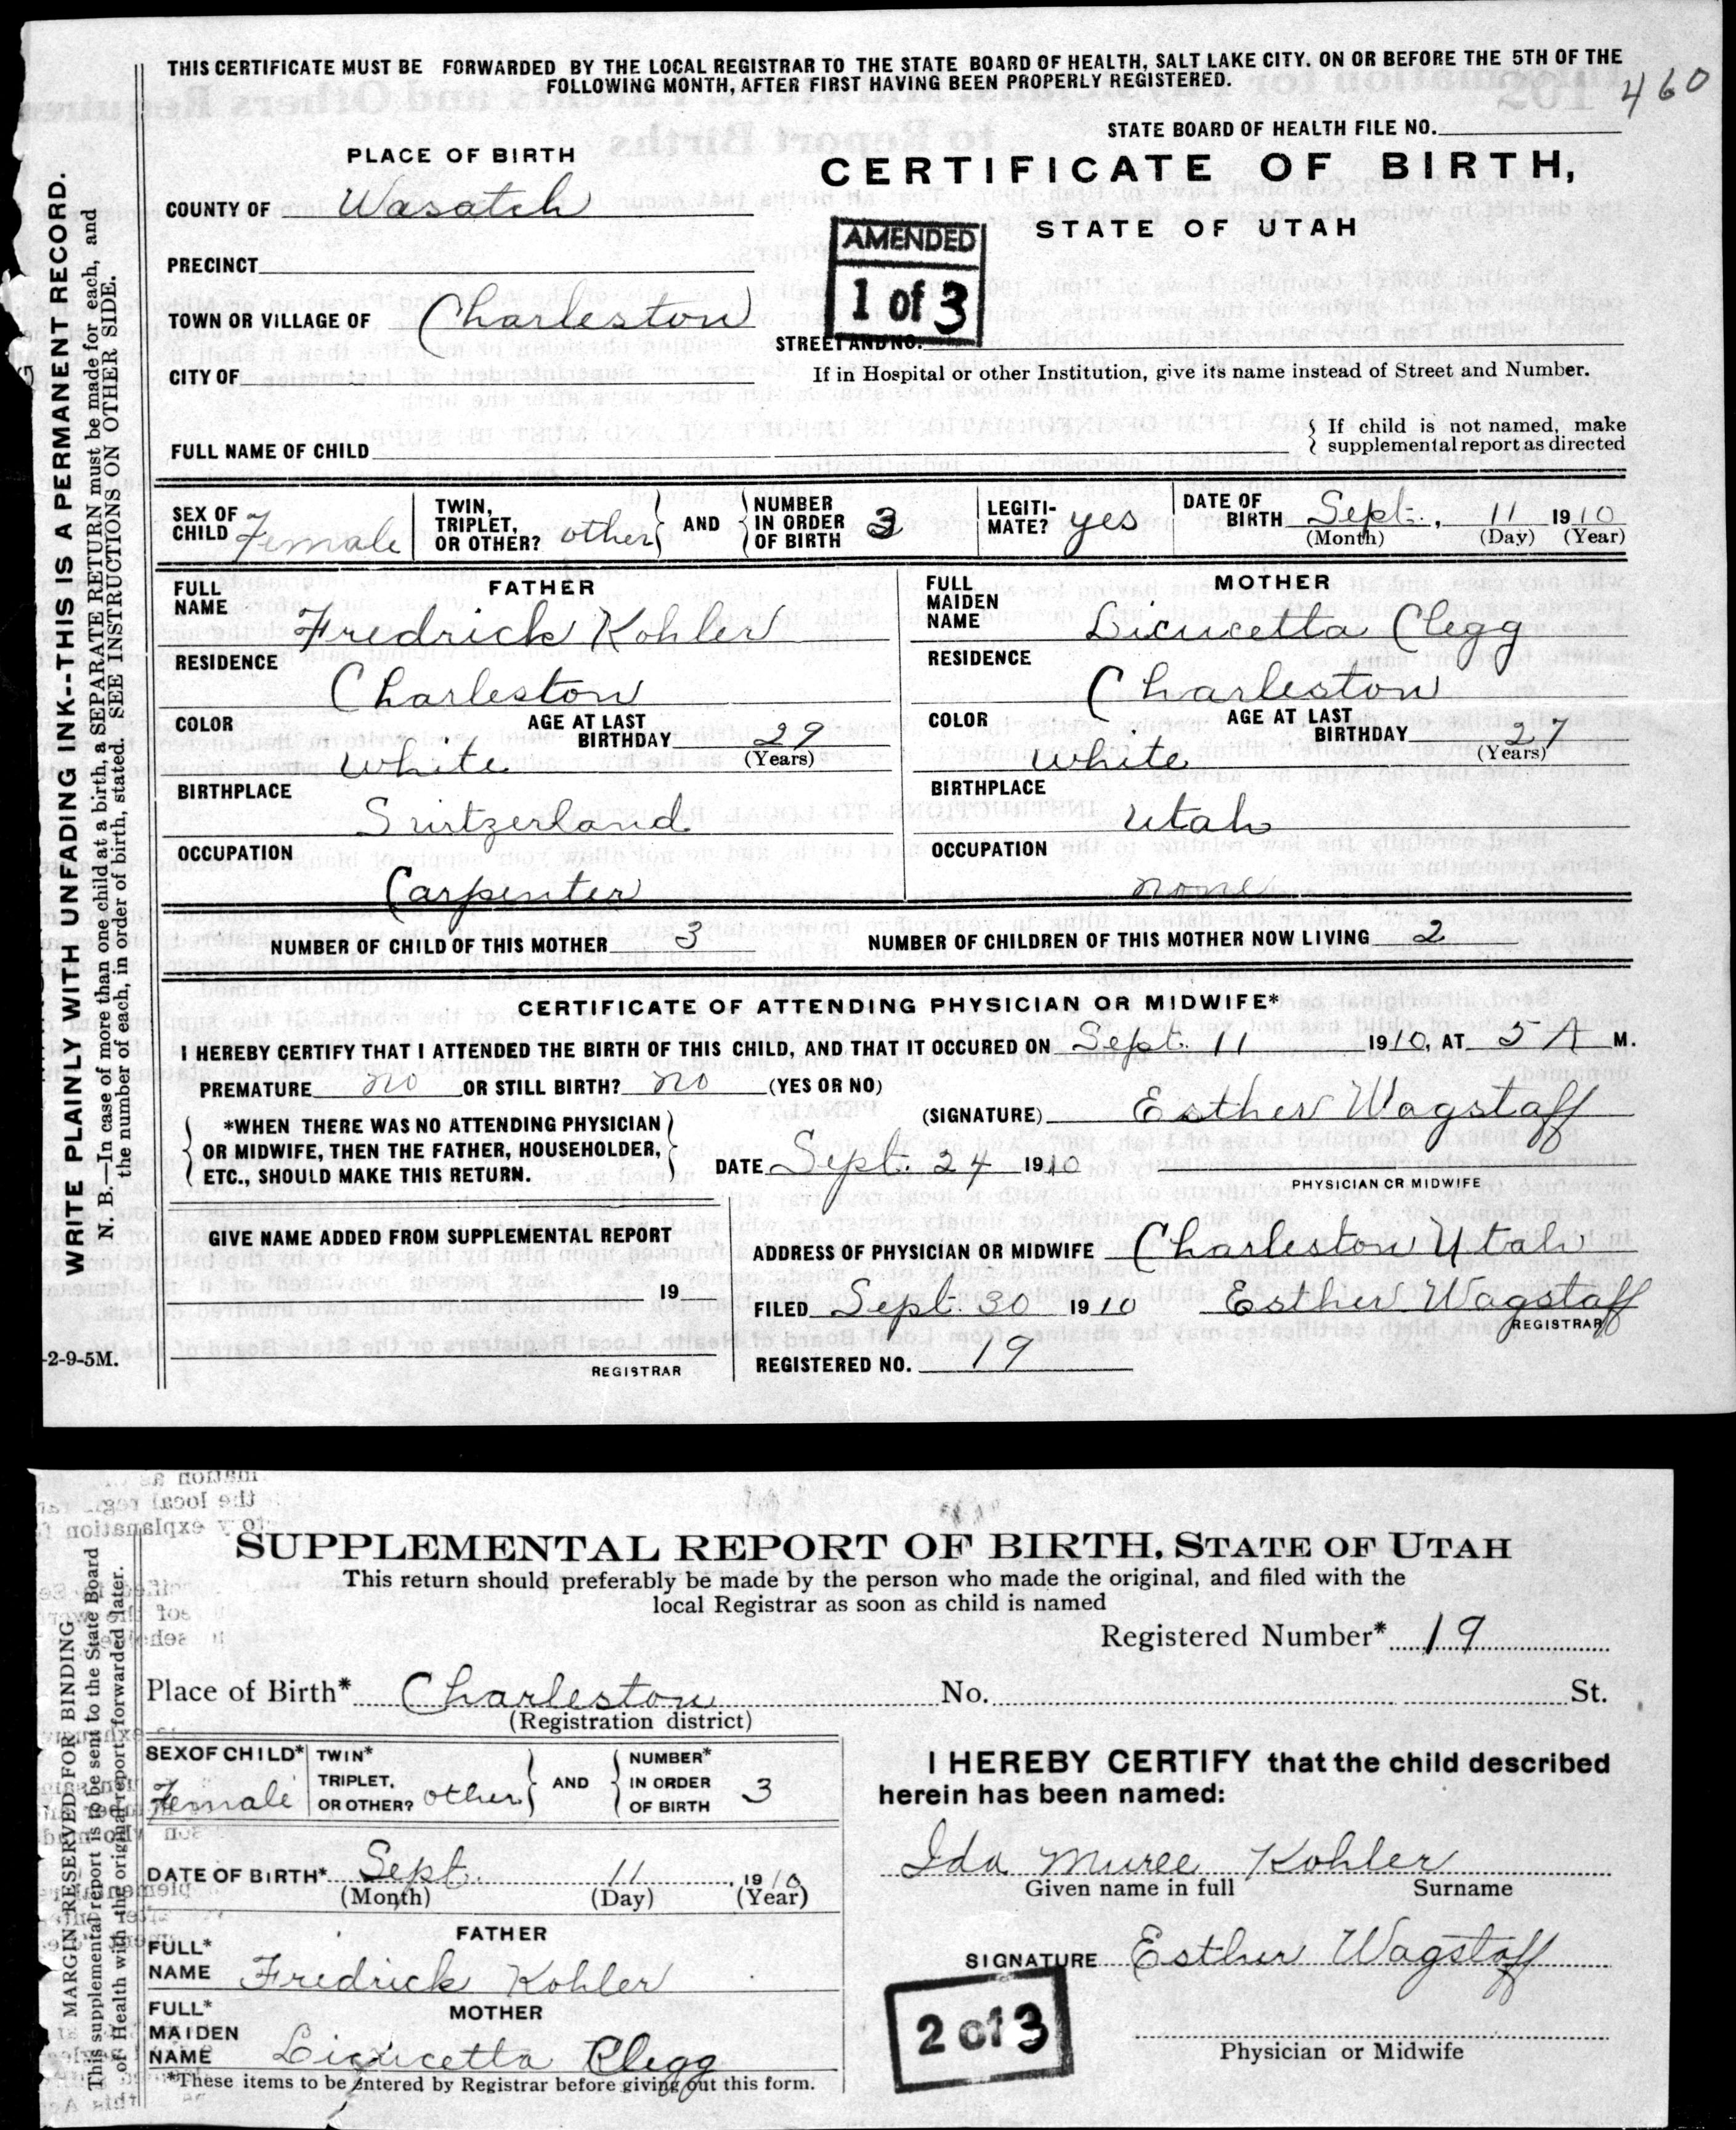 THIS CERTIFICATE MUST BE FORWARDED BY THE LOCAL REGISTRAR TO THE STATE BOARD OF HEALTH, SALT LAKE CITY. ON OR BEFORE THE 5TH OF THE
FOLLOWING MONTH, AFTER FIRST HAVING BEEN PROPERLY REGISTERED.
460
STATE BOARD OF HEALTH FILE NO.
PLACE OF BIRTH
CERTIFICATE OF BIRTH,
STATE OF UTAH
COUNTY OF Wasatch
AMENDED
1 of 3
PRECINCT
TOWN OR VILLAGE OF Charleston
STREET AND NO.
CITY OF
If in Hospital or other Institution, give its name instead of Street and Number.
FULL NAME OF CHILD
If child is not named, make
supplemental report as directed
SEX OF CHILD Female
TWIN, TRIPLET, OR OTHER? other
AND NUMBER IN ORDER OF BIRTH 3
LEGITI-MATE? yes
DATE OF BIRTH Sept. 11 1910
(Month) (Day) (Year)
FATHER
FULL NAME Fredrick Kohler
RESIDENCE Charleston
COLOR white
AGE AT LAST BIRTHDAY 29 (Years)
BIRTHPLACE Suitzerland
OCCUPATION Carpenter
MOTHER
FULL MAIDEN NAME Clegg
RESIDENCE Charleston
COLOR white
AGE AT LAST BIRTHDAY 27 (Years)
BIRTHPLACE Utah
OCCUPATION none
NUMBER OF CHILD OF THIS MOTHER 3
NUMBER OF CHILDREN OF THIS MOTHER NOW LIVING 2
CERTIFICATE OF ATTENDING PHYSICIAN OR MIDWIFE*
I HEREBY CERTIFY THAT I ATTENDED THE BIRTH OF THIS CHILD, AND THAT IT OCCURED ON Sept. 11 1910, AT 5 A M.
PREMATURE no OR STILL BIRTH? no (YES OR NO)
(SIGNATURE) Esther Wagstaff
*WHEN THERE WAS NO ATTENDING PHYSICIAN
OR MIDWIFE, THEN THE FATHER, HOUSEHOLDER,
ETC., SHOULD MAKE THIS RETURN.
DATE Sept. 24 1910
PHYSICIAN OR MIDWIFE
GIVE NAME ADDED FROM SUPPLEMENTAL REPORT
19
REGISTRAR
ADDRESS OF PHYSICIAN OR MIDWIFE Charleston Utah
FILED Sept. 30 1910 Esther Wagstaff
REGISTRAR
REGISTERED NO. 19
-2-9-5M.
WRITE PLAINLY WITH UNFADING INK--THIS IS A PERMANENT RECORD.
N. B.—In case of more than one child at a birth, a SEPARATE RETURN must be made for each, and
the number of each, in order of birth, stated. SEE INSTRUCTIONS ON OTHER SIDE.
SUPPLEMENTAL REPORT OF BIRTH, STATE OF UTAH
This return should preferably be made by the person who made the original, and filed with the
local Registrar as soon as child is named
Registered Number* 19
Place of Birth* Charleston No. St.
(Registration district)
SEX OF CHILD* Female
TWIN* TRIPLET, OR OTHER? other
AND NUMBER* IN ORDER OF BIRTH 3
DATE OF BIRTH* Sept. 11, 1910
(Month) (Day) (Year)
FATHER
FULL* NAME Fredrick Kohler
MOTHER
FULL* MAIDEN NAME Clegg
*These items to be entered by Registrar before giving out this form.
I HEREBY CERTIFY that the child described
herein has been named:
Ida Muree Kohler
Given name in full Surname
SIGNATURE Esther Wagstaff
2 of 3
Physician or Midwife
MARGIN RESERVED FOR BINDING
This supplemental report is to be sent to the State Board
of Health with the original report forwarded later.